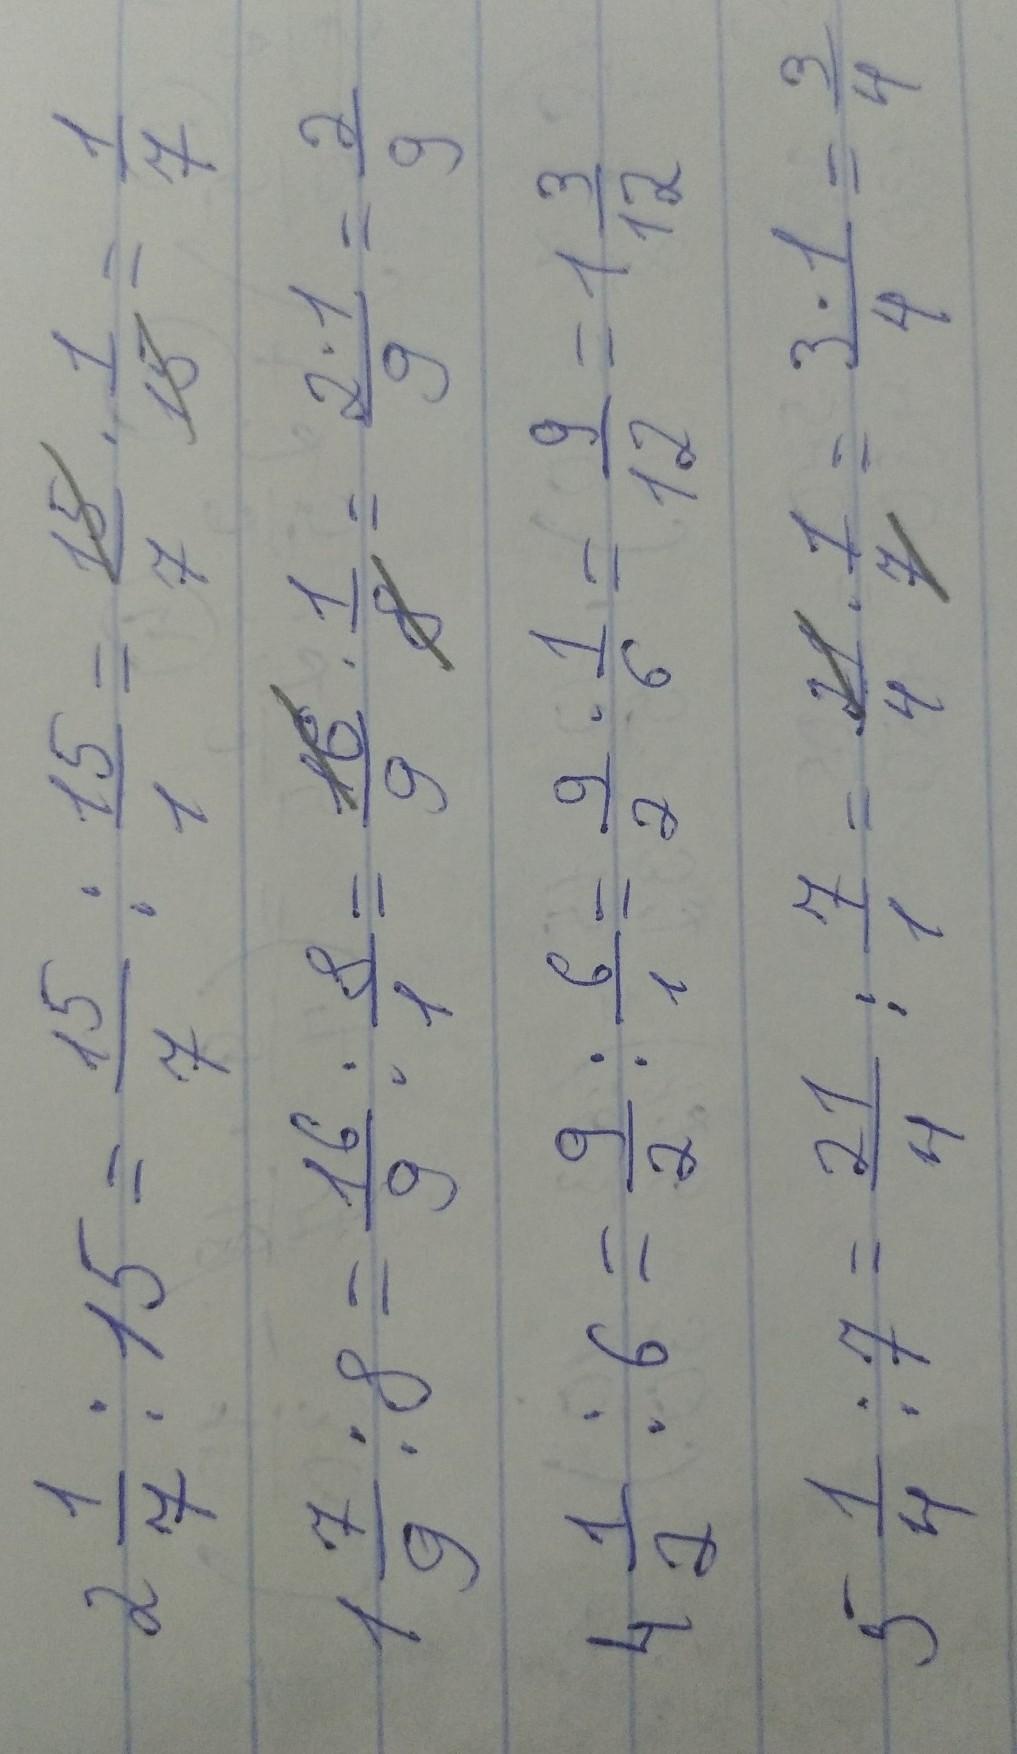 2 1/7 : 15 = 15/7 : 15/1 = 15/7 · 1/15 = 1/7
1 7/9 : 8 = 16/9 : 8/1 = 16/9 · 1/8 = 2·1/9 = 2/9
4 1/2 : 6 = 9/2 : 6/1 = 9/2 · 1/6 = 9/12 = 1 3/12
5 1/4 : 7 = 21/4 : 7/1 = 21/4 · 1/7 = 3·1/4 = 3/4